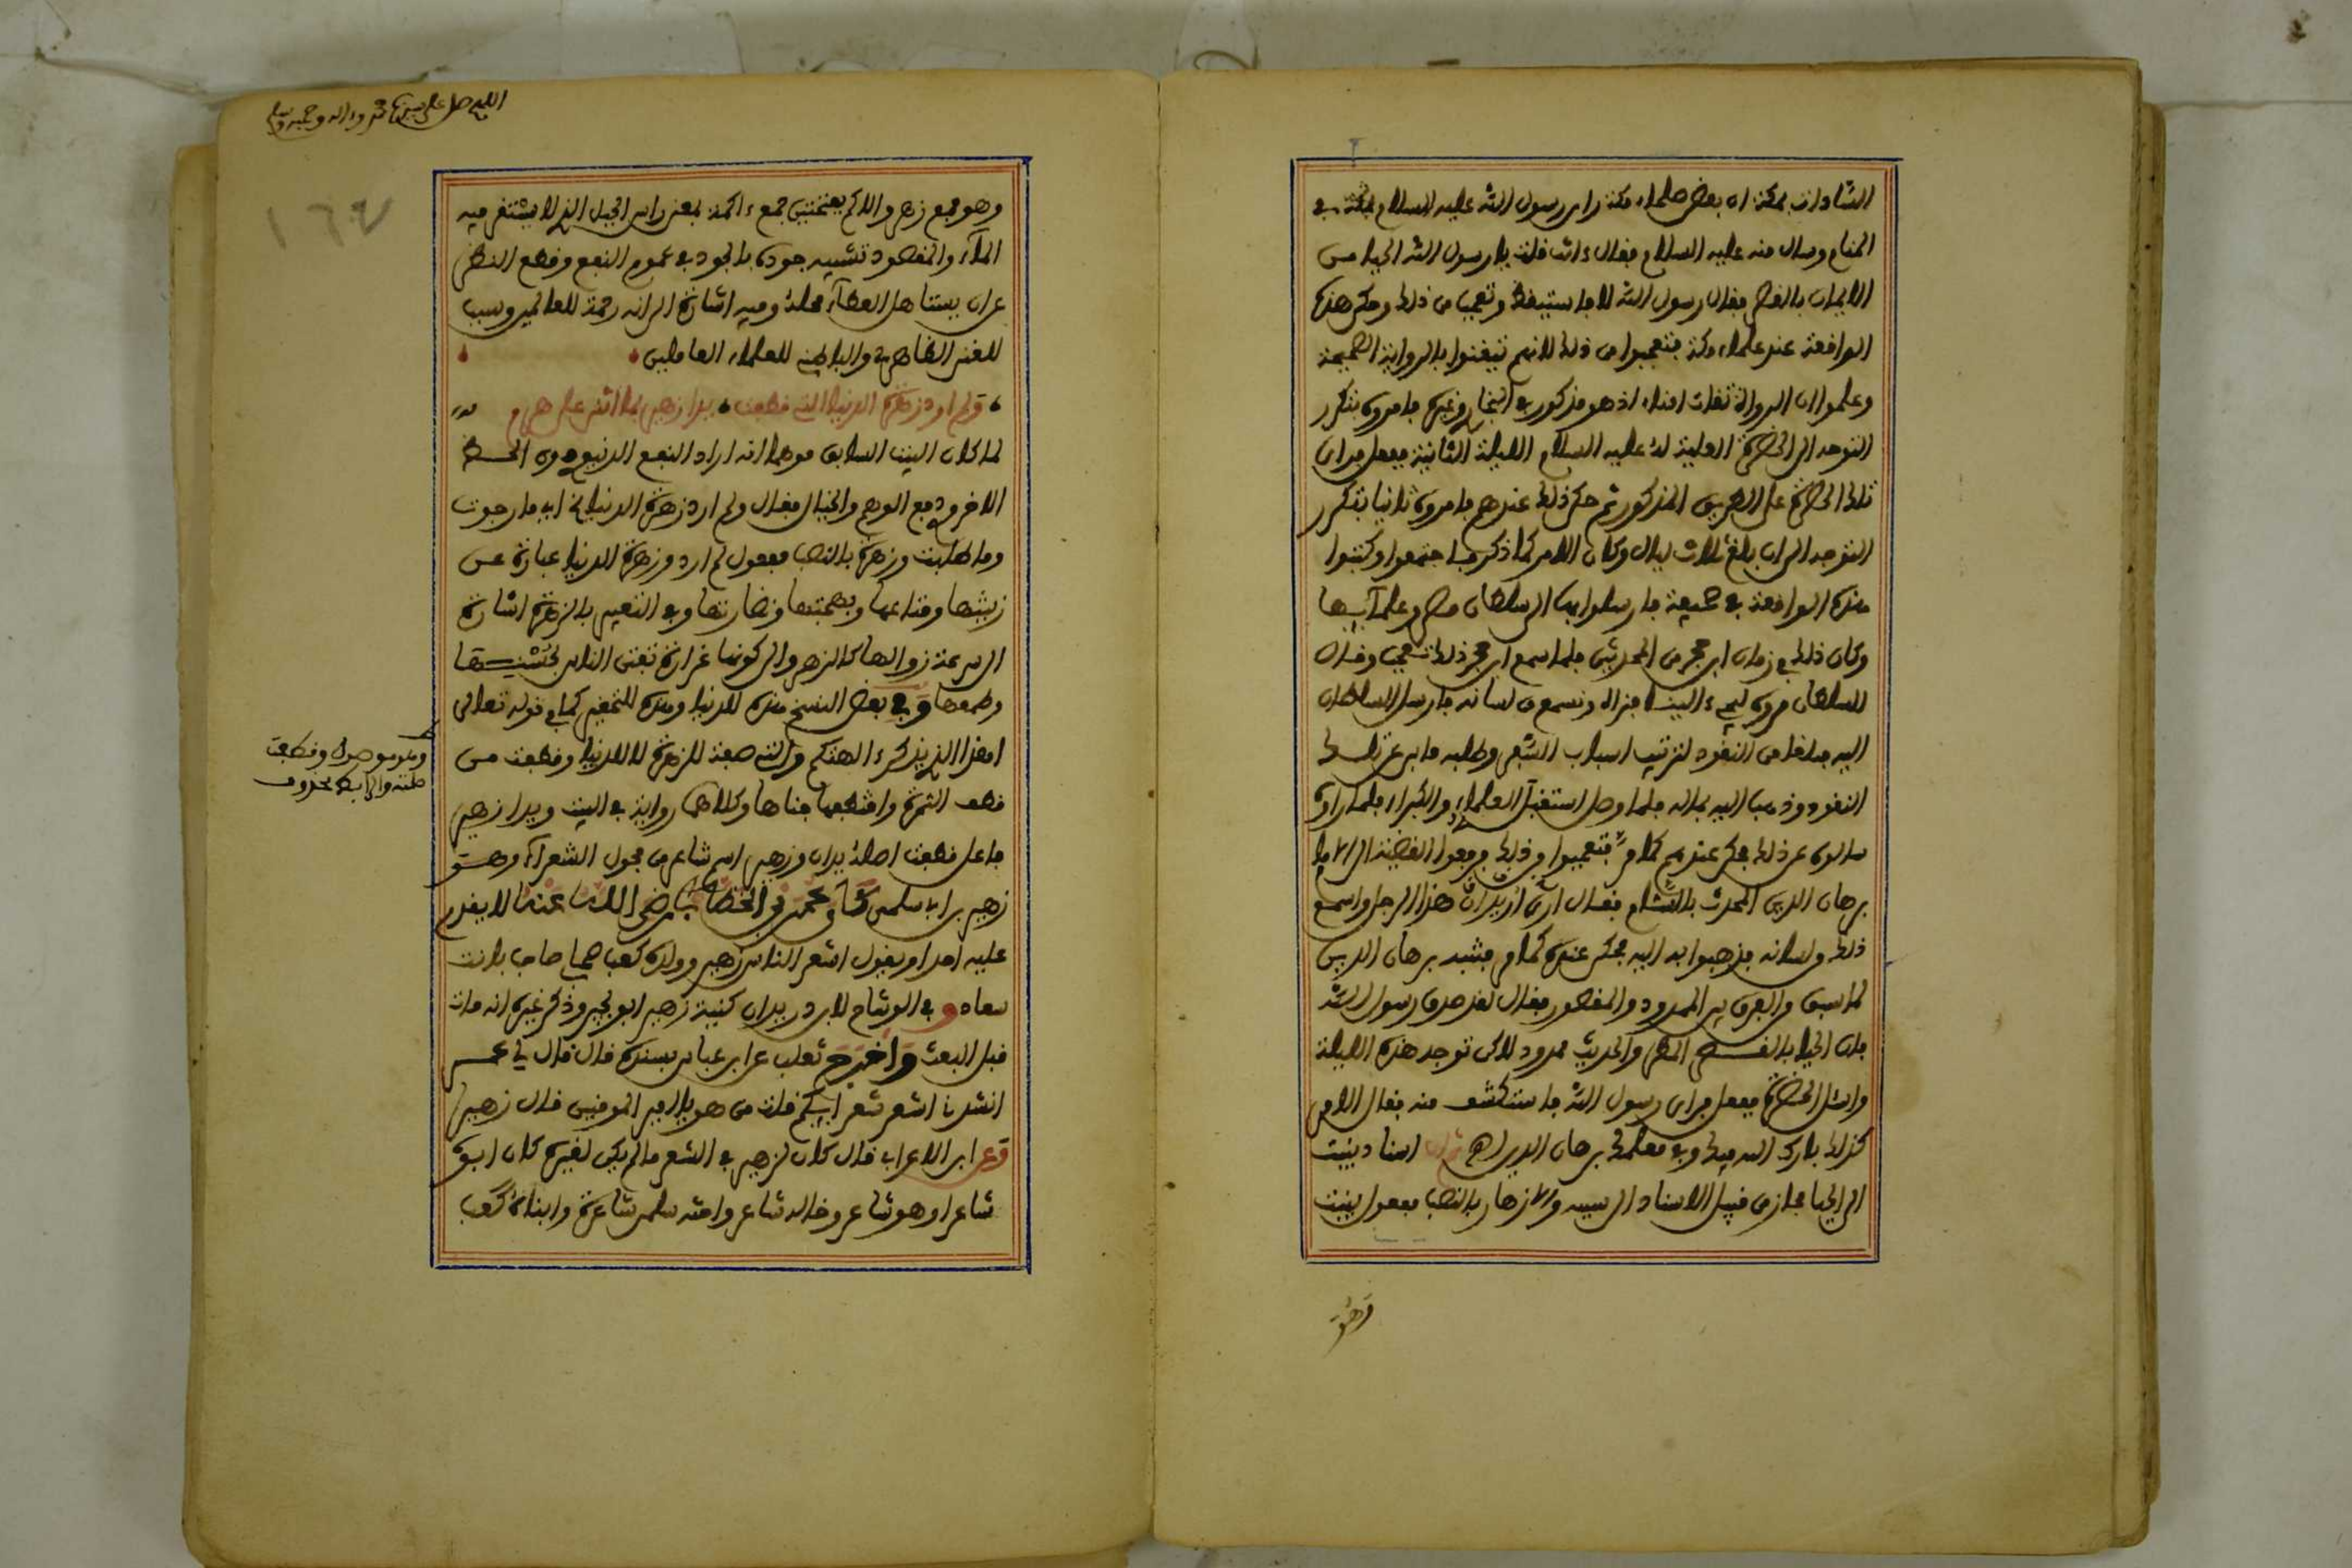 السادات بمكة ان بعض علماء مكة راى رسول الله عليه السلام بمكة في
المنام وسال منه عليه السلام فقال ءانت قلت يا رسول الله الحيا من
الايمان بالقصر فقال رسول الله لا فاستيقظ وتعجب من ذلك وحكى هذه
الواقعة عند علماء مكة فتعجبوا من ذلك لانهم تيقنوا بالرواية الصحيحة
وعلموا ان الرواة ثقات امناء اذ هو مذكور في البخاري وغيره فامروه بتكرر
التوجه الى الحضرة العلية له عليه السلام الليلة الثانية ففعل فراى
تلك الحضرة على الطريق المذكور ثم حكى ذلك عندهم فامروه ثانيا بتكرر
التوجه الى ان بلغ ثلاث ليال وكان الامر كما ذكر فاجتمعوا وكتبوا
هذه الواقعة في صحيفة فارسلوا بها الى سلطان مصر وعلمآئها
وكان ذلك في زمان ابن حجر من المحدثين فلما سمع ابن حجر ذلك تعجب وقال
للسلطان مروه ليجيء الينا فنراه ونسمع من لسانه فارسل السلطان
اليه مبلغا من النقود لترتيب اسباب السفر وطلبه فابى عن تلك
النقود وذهب اليه بماله فلما وصل استقبل العلماء والكبراء فلما راوه
سالوه عن ذلك فحكى عندهم كما مر فتعجبوا من ذلك فرفعوا القضية الى الامام
برهان الدين المحدث بالشام فقال اني اريد ان هذا الرجل واسمع
ذلك من لسانه فذهبوا به اليه فحكى عنده كما مر فتنبه برهان الدين
لما سبق من الفرق بين الممدود والمقصور فقال لقد صدق رسول الله
فان الحيا بالقصر المطر والحديث ممدود لاكن توجه هذه الليلة
واسئل الحضرة ففعل فراى رسول الله فاستكشف منه فقال الامر
كذلك بارك الله فيك وفي معلمك برهان الدين اهـ ثم ان اسناد ينبت
الى الحيا مجاز من قبيل الاسناد الى سببه والازهار بالنصب مفعول ينبت
وهو
اللهم صل على سيدنا محمد وءاله وصحبه وسلم
١٦٧
وهو جمع زهر والاكم بفتحتين جمع ءاكمة بمعنى راس الجبل الذي لا يستقر فيه
المآء والمقصود تشبيه جوده بالجود في عموم النفع وقطع النظر
عن ان يستاهل العطآء محله وفيه اشارة الى انه رحمة للعالمين وسبب
للغنى الظاهرية والباطنية للعلماء العاملين
ولم ارد زهرة الدنيا التي قطفت يدا زهير بما اثنى على هرم
لما كان البيت السابق موهما انه اراد النفع الدنيوي دون الحظ
الاخروي دفع الوهم والخيال فقال ولم ارد زهرة الدنيا الخ اي ما رجوت
وما طلبت وزهرة بالنصب مفعول لم ارد وزهرة الدنيا عبارة عن
زينتها ومتاعها وبهجتها ونضارتها وفي التعبير بالزهرة اشارة
الى سرعة زوالها كالزهر والى كونها غرارة تفتن الناس بحسنها
وطمعها وفي بعض النسخ هذه الدنيا وهذه للتحقير كما في قوله تعالى
اهذا الذي يذكر ءالهتكم والتي صفة للزهرة لا للدنيا وقطفت من
قطف الثمرة واقتطفها جناها وكلاهما رواية في البيت ويدا زهير
فاعل قطفت اصله يدان وزهير اسم شاعر من فحول الشعرآء وهو
زهير بن ابي سلمى كان عمر بن الخطاب رضي الله عنه لا يقدم
عليه احدا ويقول اشعر الناس زهير وولده كعب صحابي صاحب بانت
سعاد وفي الوشاح لابن دريد ان كنية زهير ابو بجير وذكر غيره انه مات
قبل البعث واخرج ثعلب عن ابن عباس بسنده قال قال لي عمر
انشدنا اشعر شعرائكم قلت من هو يا امير المومنين قال زهير
وعن ابن الاعرابي قال كان لزهير في الشعر ما لم يكن لغيره كان ابوه
شاعرا وهو شاعر وخاله شاعر واخته سلمى شاعرة وابناه كعب
وهو موصول وقطفت
صلته والرابط محذوف